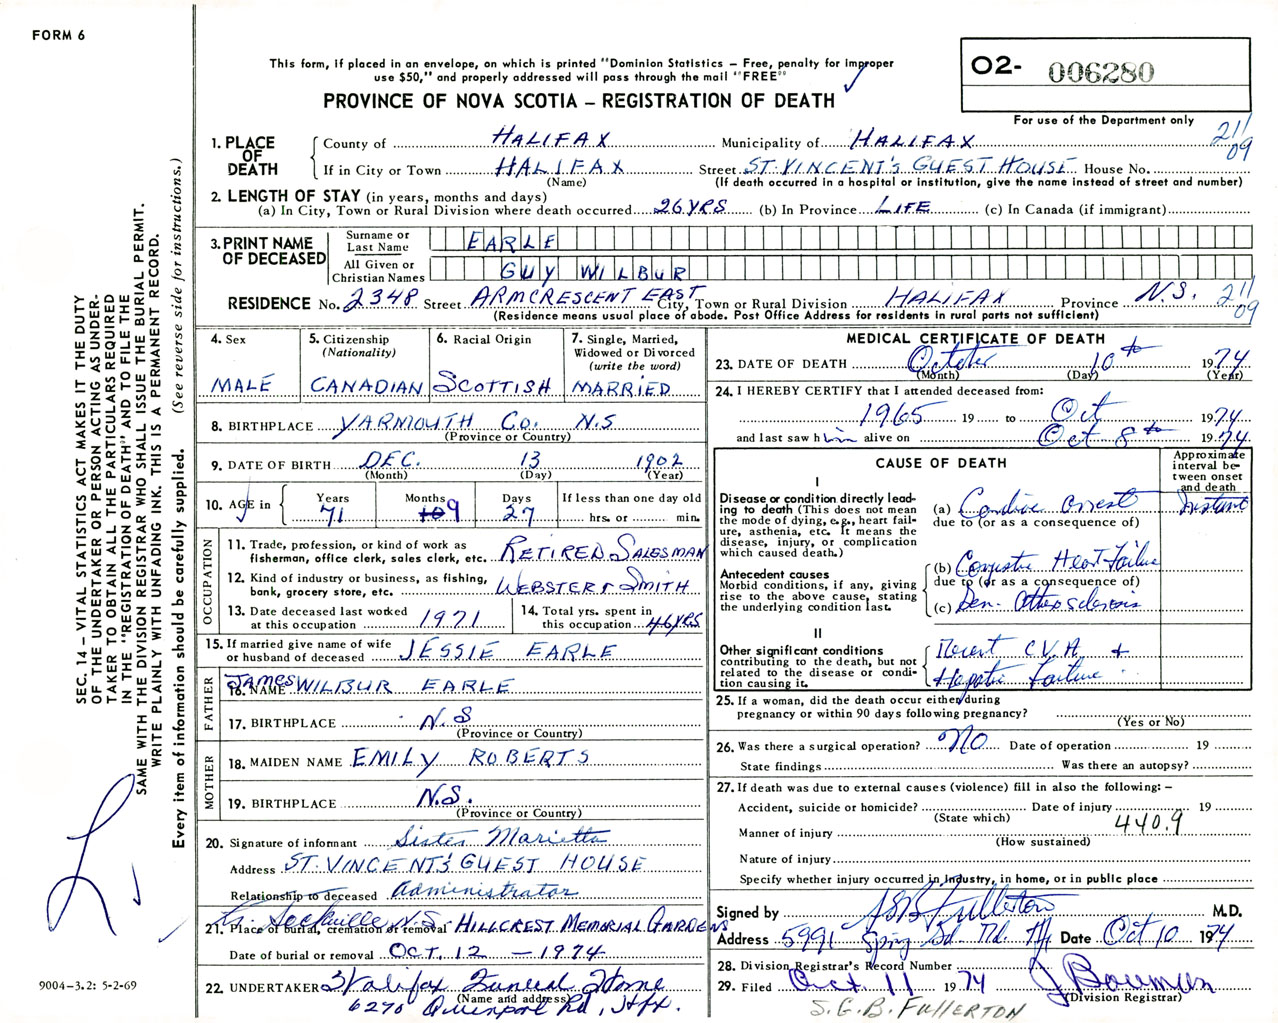 FORM 6
This form, if placed in an envelope, on which is printed "Dominion Statistics – Free, penalty for improper
use $50," and properly addressed will pass through the mail "FREE"
PROVINCE OF NOVA SCOTIA – REGISTRATION OF DEATH
02- 006280
For use of the Department only
21/09
1. PLACE OF DEATH
County of HALIFAX Municipality of HALIFAX
If in City or Town HALIFAX Street ST. VINCENT'S GUEST HOUSE House No.
(Name) (If death occurred in a hospital or institution, give the name instead of street and number)
2. LENGTH OF STAY (in years, months and days)
(a) In City, Town or Rural Division where death occurred 26 YRS (b) In Province LIFE (c) In Canada (if immigrant)
3. PRINT NAME OF DECEASED
Surname or Last Name EARLE
All Given or Christian Names GUY WILBUR
RESIDENCE No. 2348 Street ARMCRESCENT EAST City, Town or Rural Division HALIFAX Province N.S. 21/09
(Residence means usual place of abode. Post Office Address for residents in rural parts not sufficient)
4. Sex MALE
5. Citizenship (Nationality) CANADIAN
6. Racial Origin SCOTTISH
7. Single, Married, Widowed or Divorced (write the word) MARRIED
8. BIRTHPLACE YARMOUTH Co. N.S
(Province or Country)
9. DATE OF BIRTH DEC. 13 1902
(Month) (Day) (Year)
10. AGE in Years 71 Months 10 9 Days 27 If less than one day old hrs. or min.
OCCUPATION
11. Trade, profession, or kind of work as fisherman, office clerk, sales clerk, etc. RETIRED SALESMAN
12. Kind of industry or business, as fishing, bank, grocery store, etc. WEBSTER & SMITH
13. Date deceased last worked at this occupation 1971
14. Total yrs. spent in this occupation 46 YRS
15. If married give name of wife or husband of deceased JESSIE EARLE
FATHER
16. NAME JAMES WILBUR EARLE
17. BIRTHPLACE N.S
(Province or Country)
MOTHER
18. MAIDEN NAME EMILY ROBERTS
19. BIRTHPLACE N.S.
(Province or Country)
20. Signature of informant Sister Marietta
Address ST. VINCENT'S GUEST HOUSE
Relationship to deceased Administrator
Lr. Sackville N.S.
21. Place of burial, cremation or removal HILLCREST MEMORIAL GARDENS
Date of burial or removal OCT. 12 – 1974
22. UNDERTAKER Halifax Funeral Home
(Name and address)
6270 Quinpool Rd, Hfx.
MEDICAL CERTIFICATE OF DEATH
23. DATE OF DEATH October 10th 1974
(Month) (Day) (Year)
24. I HEREBY CERTIFY that I attended deceased from:
1965 19 to Oct 1974
and last saw him alive on Oct 8th 1974
CAUSE OF DEATH
Approximate interval between onset and death
I
Disease or condition directly leading to death (This does not mean the mode of dying, e.g., heart failure, asthenia, etc. It means the disease, injury, or complication which caused death.)
(a) Cardiac arrest Instant
due to (or as a consequence of)
Antecedent causes
Morbid conditions, if any, giving rise to the above cause, stating the underlying condition last.
(b) Congestive Heart Failure
due to (or as a consequence of)
(c) Gen. Atherosclerosis
II
Other significant conditions contributing to the death, but not related to the disease or condition causing it.
Recent C.V.A. +
Hepatic Failure
25. If a woman, did the death occur either during pregnancy or within 90 days following pregnancy?
(Yes or No)
26. Was there a surgical operation? No Date of operation 19
State findings Was there an autopsy?
27. If death was due to external causes (violence) fill in also the following: –
Accident, suicide or homicide? Date of injury 19
(State which) 440.9
Manner of injury
(How sustained)
Nature of injury
Specify whether injury occurred in Industry, in home, or in public place
Signed by SGB Fullerton M.D.
Address 5991 Spring Gd. Rd. Hfx Date Oct 10 1974
28. Division Registrar's Record Number
29. Filed Oct. 11 1974 J Bowmen
(Division Registrar)
S.G.B. FULLERTON
SEC. 14 – VITAL STATISTICS ACT MAKES IT THE DUTY
OF THE UNDERTAKER OR PERSON ACTING AS UNDER-
TAKER TO OBTAIN ALL THE PARTICULARS REQUIRED
IN THE "REGISTRATION OF DEATH" AND TO FILE THE
SAME WITH THE DIVISION REGISTRAR WHO SHALL ISSUE THE BURIAL PERMIT.
WRITE PLAINLY WITH UNFADING INK. THIS IS A PERMANENT RECORD.
Every item of information should be carefully supplied. (See reverse side for instructions.)
9004–3.2: 5-2-69